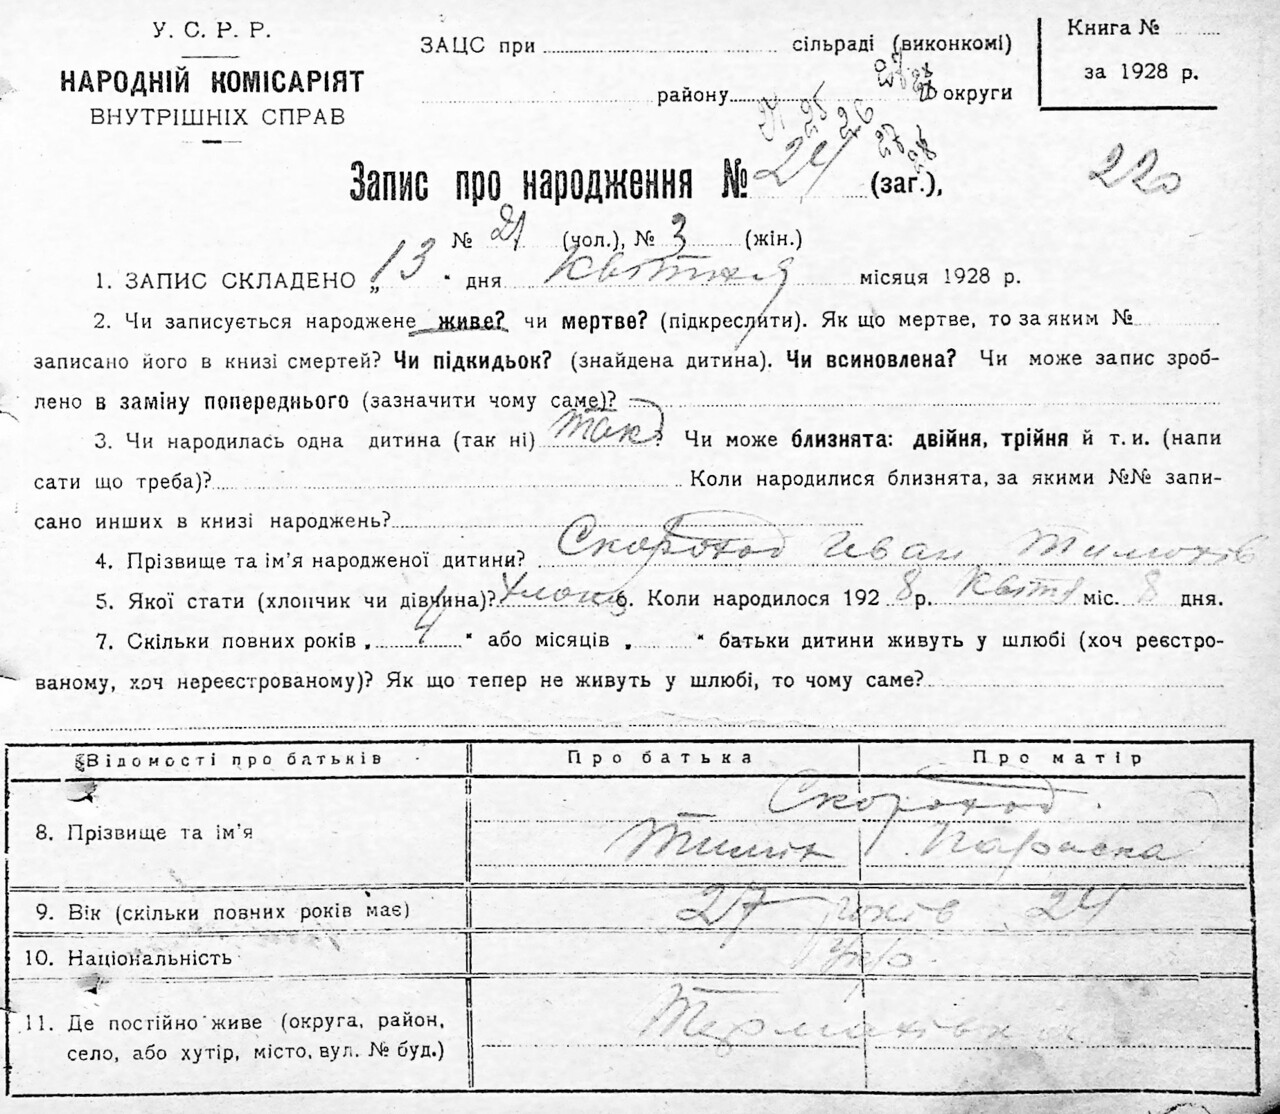 У. С. Р. Р.
НАРОДНІЙ КОМІСАРІЯТ
ВНУТРІШНІХ СПРАВ
ЗАЦС при сільраді (виконкомі)
району округи
Книга №
за 1928 р.
220
Запис про народження № 24 (заг.),
№ 21 (чол.), № 3 (жін.)
1. ЗАПИС СКЛАДЕНО „13" дня Квітня місяця 1928 р.
2. Чи записується народжене живе? чи мертве? (підкреслити). Як що мертве, то за яким №
записано його в книзі смертей? Чи підкидьок? (знайдена дитина). Чи всиновлена? Чи може запис зроб-
лено в заміну попереднього (зазначити чому саме)?
3. Чи народилась одна дитина (так ні) так. Чи може близнята: двійня, трійня й т. и. (напи
сати що треба)? Коли народилися близнята, за якими №№ запи-
сано инших в книзі народжень?
4. Прізвище та ім'я народженої дитини? Скороход Иван Тимохів
5. Якої стати (хлопчик чи дівчина)? Хлопц 6. Коли народилося 1928 р. Квітня міс. 8 дня.
7. Скільки повних років „4" або місяців „ " батьки дитини живуть у шлюбі (хоч реєстро-
ваному, хоч нереєстрованому)? Як що тепер не живуть у шлюбі, то чому саме?
Відомості про батьків Про батька Про матір
8. Прізвище та ім'я Скороход
Тиміш Параска
9. Вік (скільки повних років має) 27 років 24
10. Національність Укр.
11. Де постійно живе (округа, район,
село, або хутір, місто, вул. № буд.) Термахівка